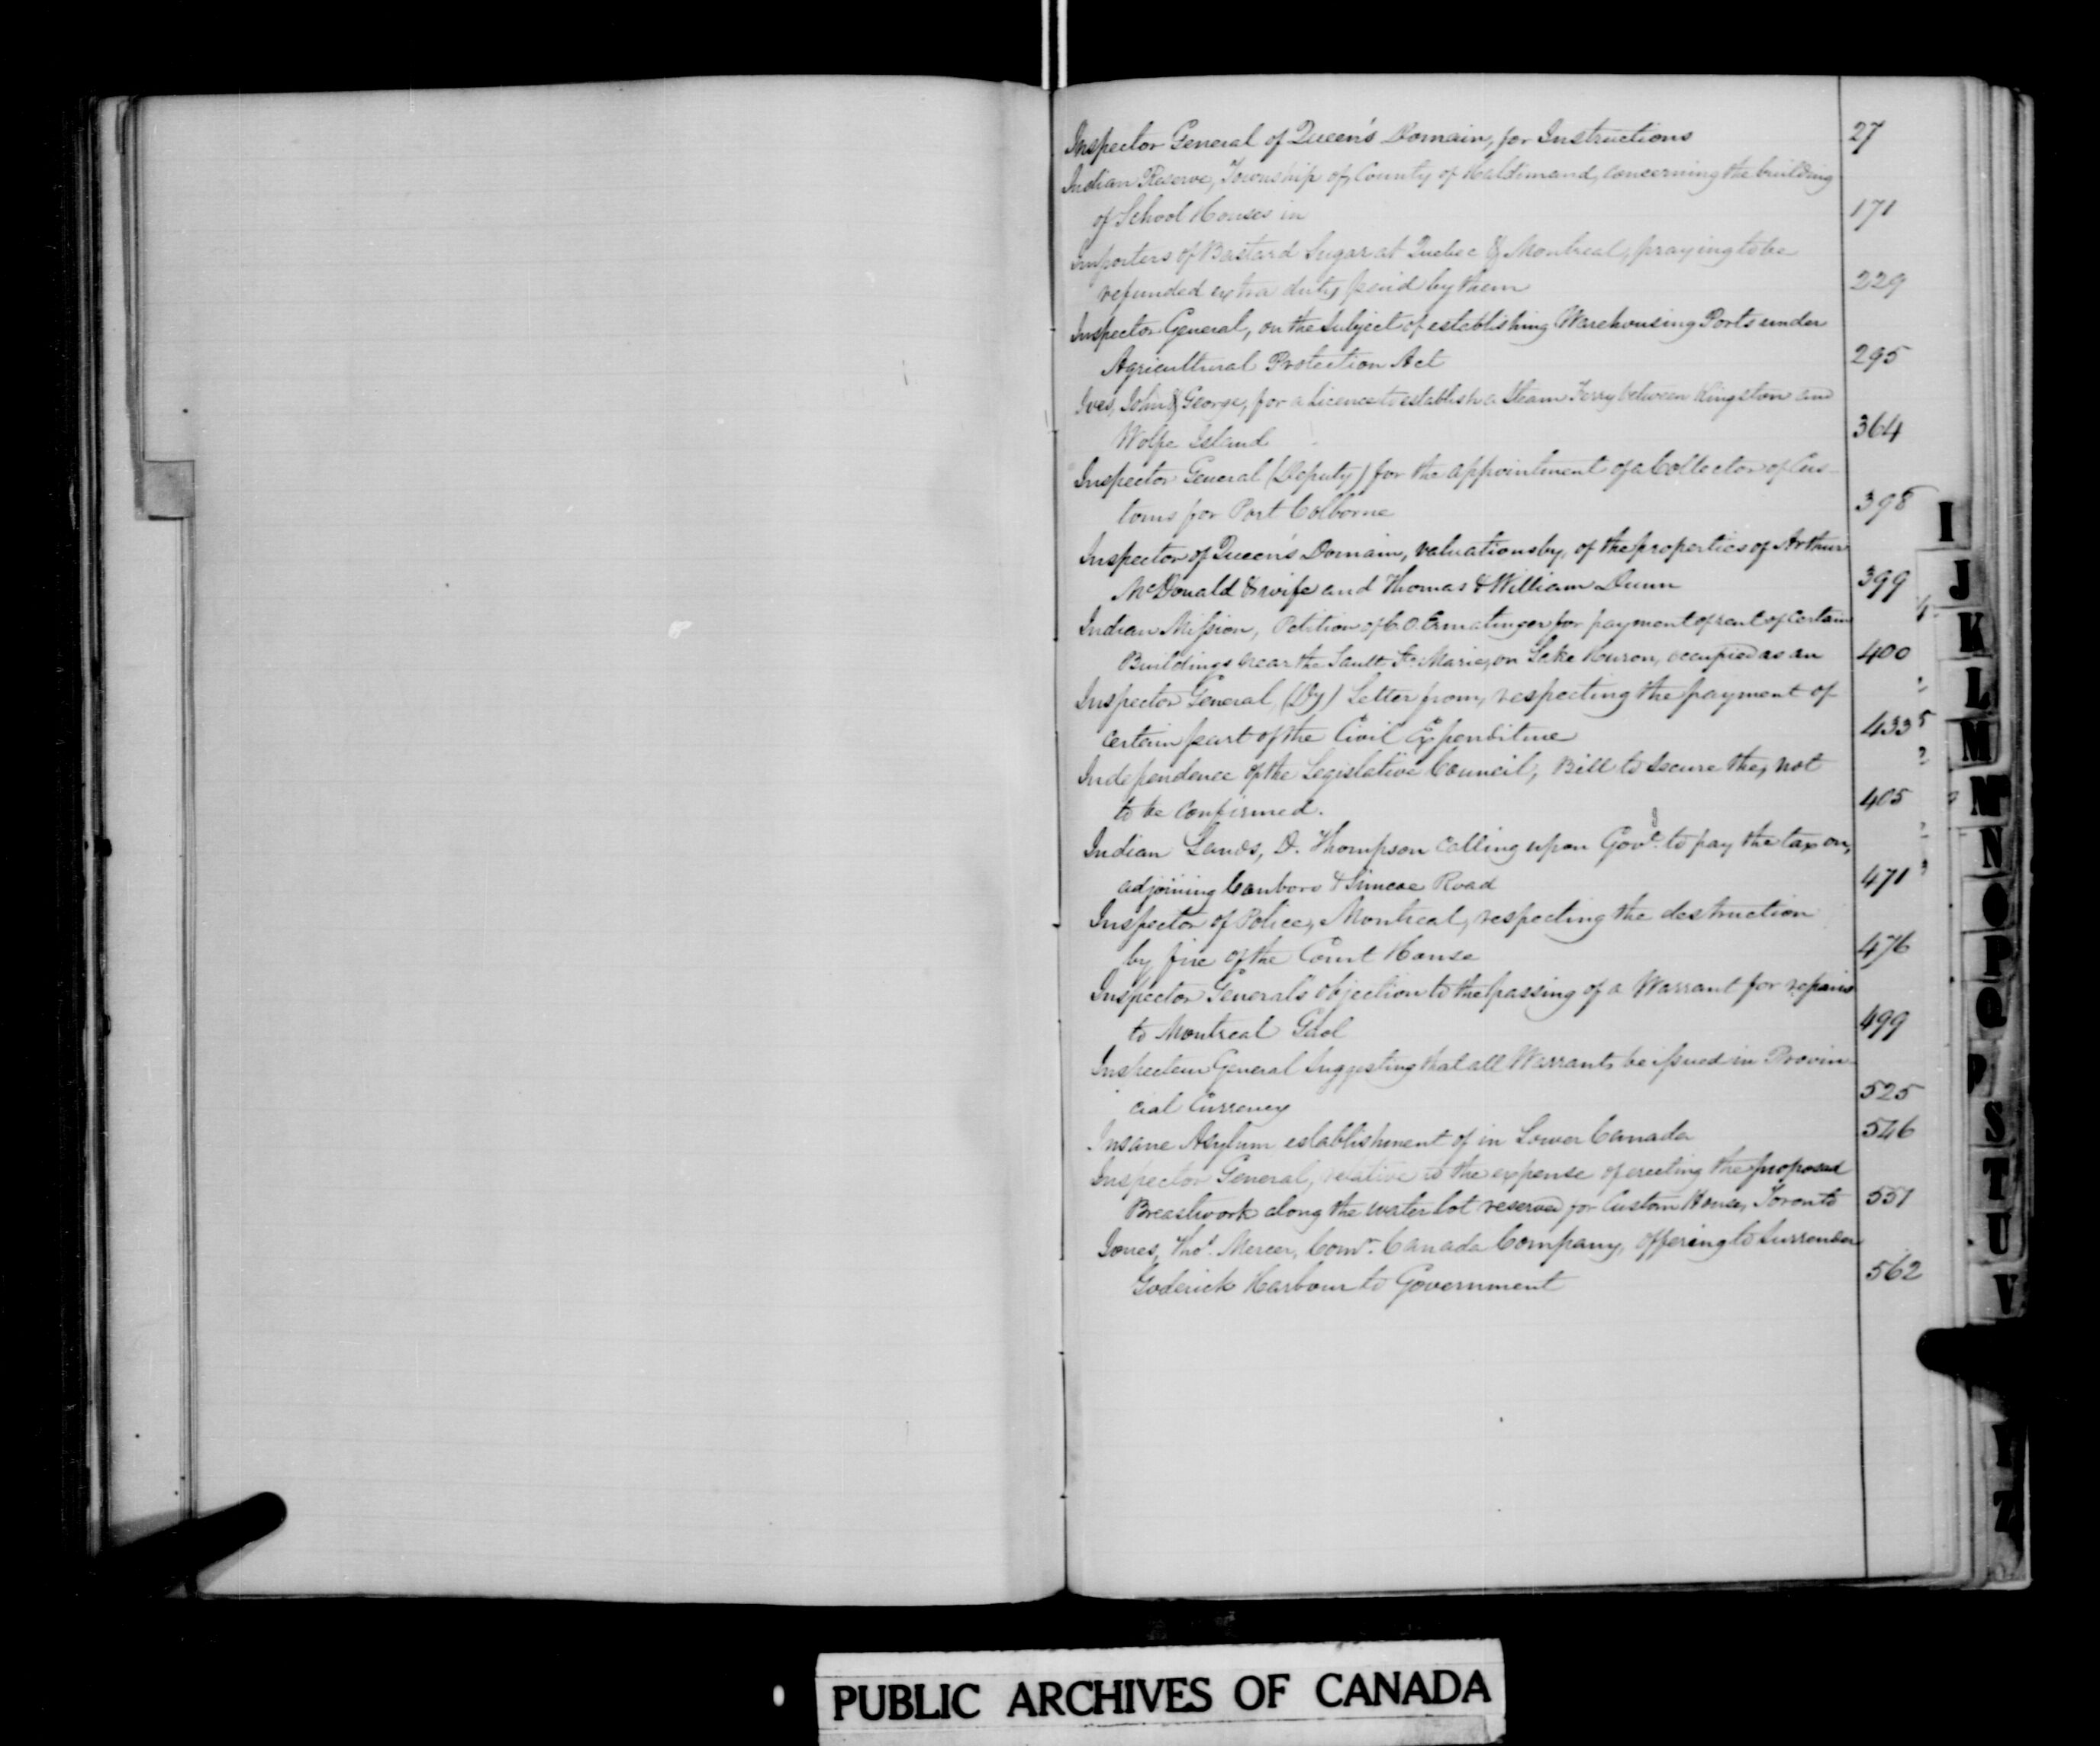 Inspector General of Queen's Domain, for Instructions 27
Indian Reserve, Township of, County of Haldimand, concerning the building
of School Houses in 171
Importers of Bastard Sugar at Quebec & Montreal, praying to be
refunded extra duty paid by them 229
Inspector General, on the Subject of establishing Warehousing Ports under
Agricultural Protection Act 295
Ives, John & George, for a Licence to establish a Steam Ferry between Kingston and
Wolfe Island 364
Inspector General (Deputy) for the appointment of a Collector of Cus-
toms for Port Colborne 398
Inspector of Queen's Domain, valuations by, of the properties of Arthur
McDonald & wife and Thomas & William Dunn 399
Indian Mission, Petition of C. O. Ermatinger for payment of rent of certain
Buildings near the Sault Ste Marie, on Lake Huron, occupied as an 400
Inspector General, (Dy) Letter from, respecting the payment of
certain part of the Civil Expenditure 433
Independence of the Legislative Council, Bill to Secure the, not
to be confirmed. 405
Indian Lands, D. Thompson calling upon Govt. to pay the tax on,
adjoining Canboro & Simcoe Road 471
Inspector of Police, Montreal, respecting the destruction
by fire of the Court House 476
Inspector General's objection to the passing of a Warrant for repairs
to Montreal Gaol 499
Inspecteur General Suggesting that all Warrants be issued in Provin-
cial Currency 525
Insane Asylum establishment of in Lower Canada 546
Inspector General, relative to the expense of erecting the proposed
Breastwork along the water lot reserved for Custom House, Toronto 551
Jones, Thos. Mercer, Comr. Canada Company, offering to Surrender
Goderich Harbour to Government 562
I
J
K
L
M
N
O
P
Q
S
T
U
V
Z
PUBLIC ARCHIVES OF CANADA